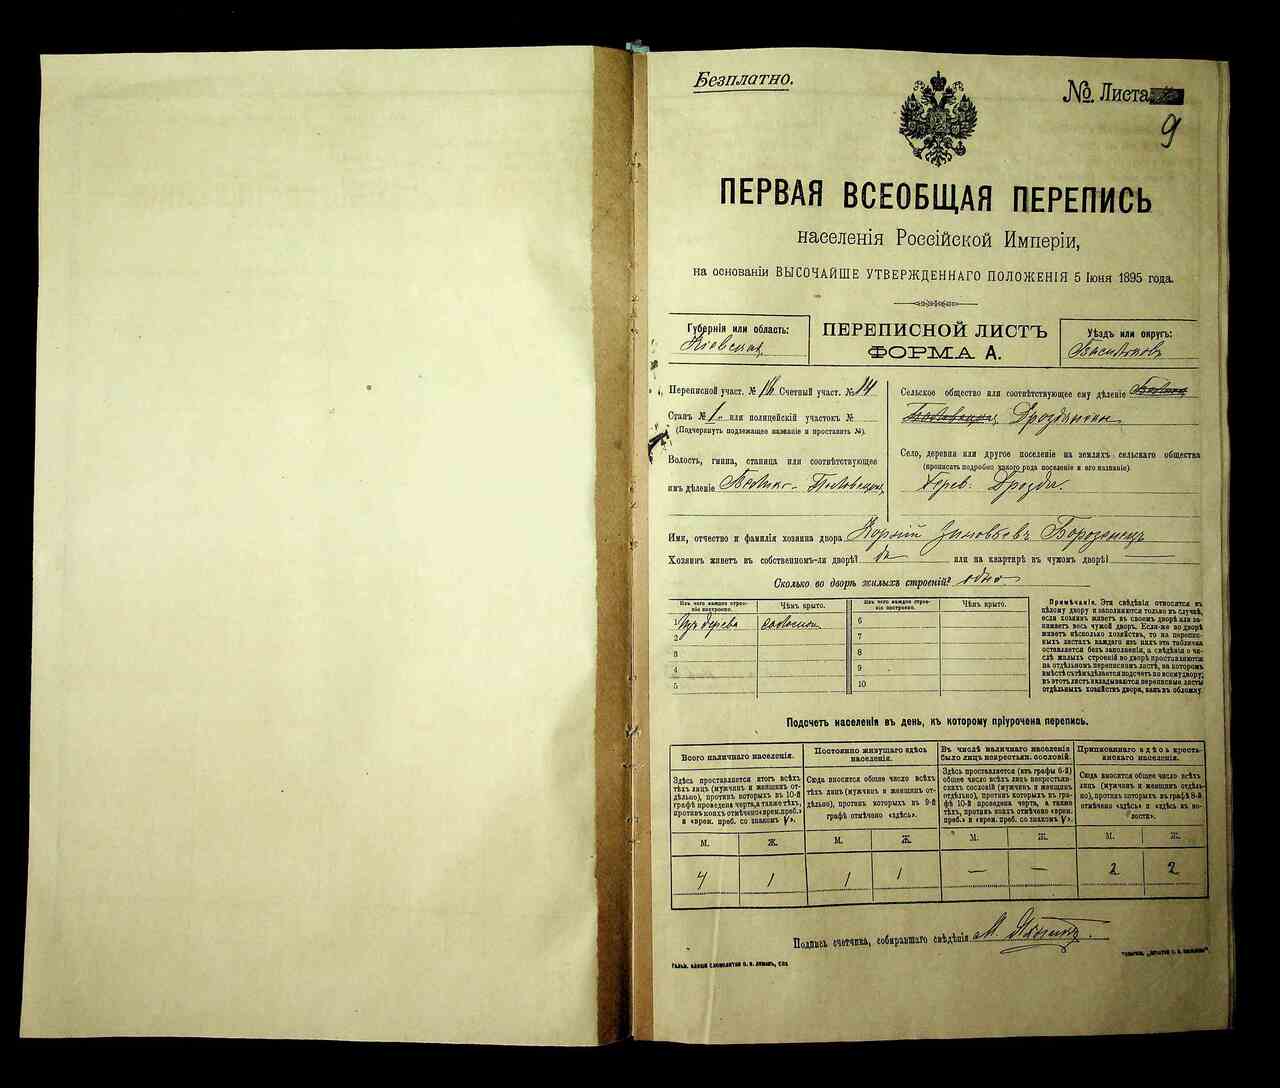 Безплатно.
№. Листа
9
ПЕРВАЯ ВСЕОБЩАЯ ПЕРЕПИСЬ
населенія Россійской Имперіи,
на основаніи ВЫСОЧАЙШЕ УТВЕРЖДЕННАГО ПОЛОЖЕНІЯ 5 Іюня 1895 года.
Губернія или область:
Кіевская
ПЕРЕПИСНОЙ ЛИСТЪ
ФОРМА А.
Уѣздъ или округъ:
Васильков
Переписной участ. № 16 Счетный участ. № 14
Станъ № 1 или полицейскій участокъ №
(Подчеркнуть подлежащее названіе и проставить №).
Волость, гмина, станица или соотвѣтствующее
имъ дѣленіе
Сельское общество или соотвѣтствующее ему дѣленіе
Село, деревня или другое поселеніе на земляхъ сельскаго общества
(прописать подробно какого рода поселеніе и его названіе)
Дерев. Дрозды.
Имя, отчество и фамилія хозяина двора Корній Зиновьевъ
Хозяинъ живетъ въ собственномъ-ли дворѣ? да или на квартирѣ въ чужомъ дворѣ?
Сколько во дворѣ жилыхъ строеній? одно
Изъ чего каждое строеніе построено.
Чѣмъ крыто.
Изъ чего каждое строеніе построено.
Чѣмъ крыто.
1 Изъ дерева соломой
2
3
4
5
6
7
8
9
10
Примѣчаніе. Эти свѣдѣнія относятся къ
цѣлому двору и заполняются только въ случаѣ,
если хозяинъ живетъ въ своемъ дворѣ или занимаетъ
весь чужой дворъ. Если-же во дворѣ
живетъ нѣсколько хозяйствъ, то на переписныхъ
листахъ каждаго изъ нихъ эта табличка
оставляется безъ заполненія, а свѣдѣнія о числѣ
жилыхъ строеній во дворѣ проставляются
на отдѣльномъ переписномъ листѣ, на которомъ
вмѣстѣ съ тѣмъ дѣлается подсчетъ по всему двору;
въ этотъ листъ вкладываются переписные листы
отдѣльныхъ хозяйствъ двора, какъ въ обложку.
Подсчетъ населенія въ день, къ которому пріурочена перепись.
Всего наличнаго населенія.
Здѣсь проставляется итогъ всѣхъ
тѣхъ лицъ (мужчинъ и женщинъ отдѣльно),
противъ которыхъ въ 10-й
графѣ проведена черта, а также тѣхъ,
противъ коихъ отмѣчено «врем. преб.»
и «врем. преб. со знакомъ V».
Постоянно живущаго здѣсь
населенія.
Сюда вносится общее число всѣхъ
тѣхъ лицъ (мужчинъ и женщинъ отдѣльно),
противъ которыхъ въ 9-й
графѣ отмѣчено «здѣсь».
Въ числѣ наличнаго населенія
было лицъ некрестьян. сословій.
Здѣсь проставляется (изъ графы 6-й)
общее число всѣхъ лицъ некрестьянскихъ
сословій (мужчинъ и женщинъ отдѣльно),
противъ коихъ въ графѣ
10-й проведена черта, а также
тѣхъ, противъ коихъ отмѣчено «врем.
преб.» и «врем. преб. со знакомъ V».
Приписаннаго здѣсь крестьянскаго
населенія.
Сюда вносится общее число всѣхъ
лицъ (мужчинъ и женщинъ отдѣльно),
противъ которыхъ въ графѣ 8-й
отмѣчено «здѣсь» и «здѣсь въ волости».
М. Ж. М. Ж. М. Ж. М. Ж.
4 1 1 1 — — 2 2
Подпись счетчика, собиравшаго свѣдѣнія М.